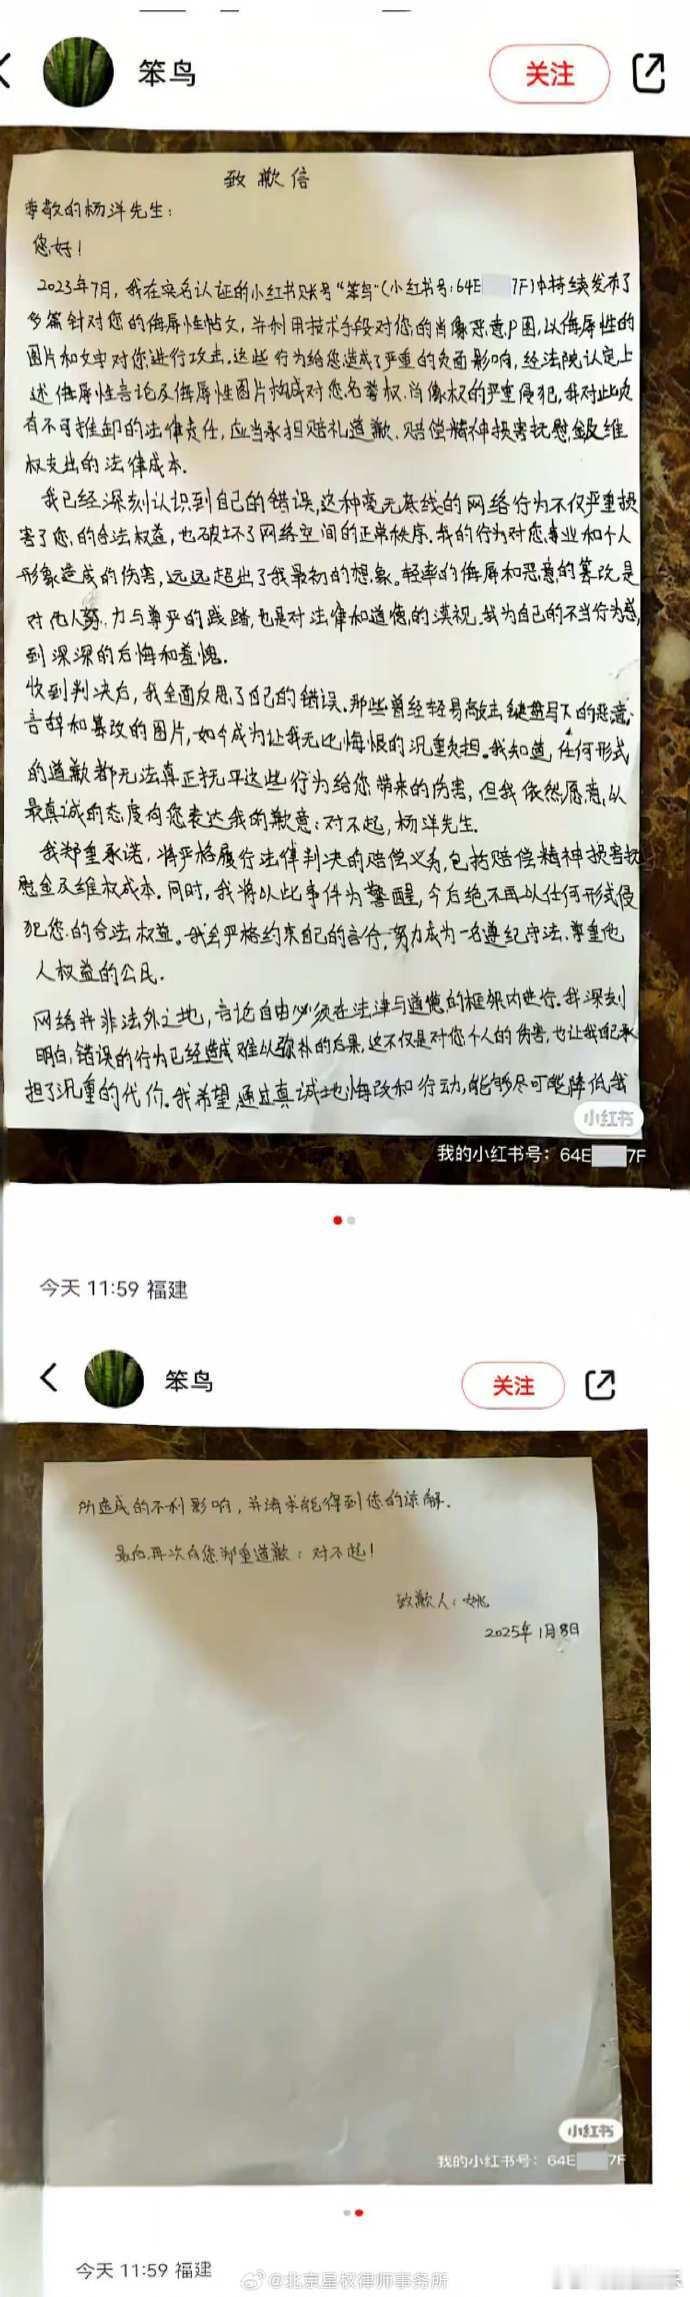 笨鸟
关注
致歉信
尊敬的杨洋先生:
您好!
2023年7月,我在实名认证的小红书账号“笨鸟”(小红书号:64E 7F)中持续发布了
多篇针对您的侮辱性帖文,并利用技术手段对您的肖像恶意P图,以侮辱性的
图片和文字对您进行攻击.这些行为给您造成了严重的负面影响,经法院认定上
述侮辱性言论及侮辱性图片构成对您名誉权、肖像权的严重侵犯,我对此负
有不可推卸的法律责任,应当承担赔礼道歉、赔偿精神损害抚慰金及维
权支出的法律成本.
我已经深刻认识到自己的错误,这种毫无底线的网络行为不仅严重损
害了您的合法权益,也破坏了网络空间的正常秩序.我的行为对您事业和个人
形象造成的伤害,远远超出了我最初的想象.轻率的侮辱和恶意的篡改是
对他人努力与尊严的践踏,也是对法律和道德的漠视.我为自己的不当行为感
到深深的后悔和羞愧.
收到判决后,我全面反思了自己的错误.那些曾经轻易敲击键盘写下的恶意
言辞和篡改的图片,如今成为让我无比悔恨的沉重负担.我知道,任何形式
的道歉都无法真正抚平这些行为给您带来的伤害,但我依然愿意从
最真诚的态度向您表达我的歉意:对不起,杨洋先生.
我郑重承诺,将严格履行法律判决的赔偿义务,包括赔偿精神损害抚
慰金及维权成本.同时,我将以此事件为警醒,今后绝不再以任何形式侵
犯您的合法权益。我会严格约束自己的言行,努力成为一名遵纪守法、尊重他
人权益的公民.
网络并非法外之地,言论自由必须在法律与道德的框架内进行.我深刻
明白,错误的行为已经造成难以弥补的后果,这不仅是对您个人的伤害,也让我自己承
担了沉重的代价.我希望通过真诚地悔改和行动,能够尽可能降低我
小红书
我的小红书号:64E 7F
今天 11:59 福建
笨鸟
关注
所造成的不利影响,并请求能得到您的谅解.
最后再次向您郑重道歉:对不起!
致歉人:姚
2025年1月8日
小红书
我的小红书号:64E 7F
今天 11:59 福建
@北京星权律师事务所